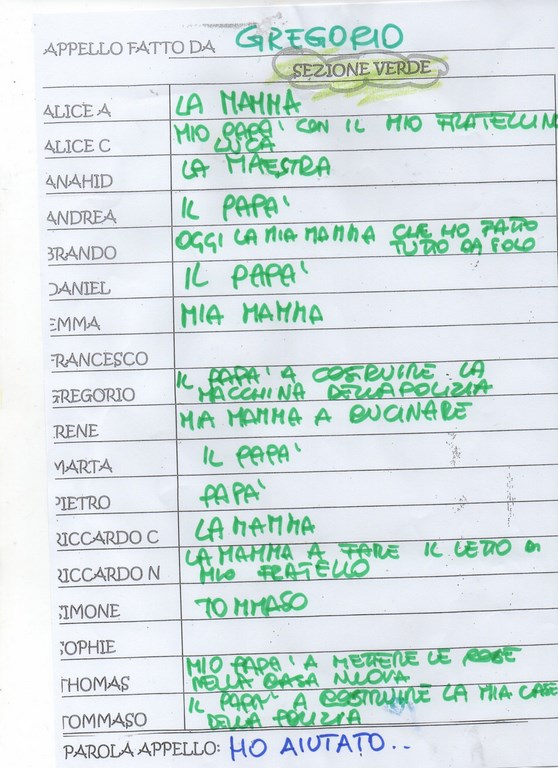 APPELLO FATTO DA GREGORIO
SEZIONE VERDE
ALICE A LA MAMMA
ALICE C MIO PAPA' CON IL MIO FRATELLIN
LUCA
ANAHID LA MAESTRA
ANDREA IL PAPA'
BRANDO OGGI LA MIA MAMMA CHE HO FATTO
TUTTO DA SOLO
DANIEL IL PAPA'
EMMA MIA MAMMA
FRANCESCO
GREGORIO IL PAPA' A COSTRUIRE LA
MACCHINA DELLA POLIZIA
IRENE MIA MAMMA A CUCINARE
MARTA IL PAPA'
PIETRO PAPA'
RICCARDO C LA MAMMA
RICCARDO N LA MAMMA A FARE IL LETTO DI
MIO FRATELLO
SIMONE TOMMASO
SOPHIE
THOMAS MIO PAPA' A METTERE LE COSE
NELLA CASA NUOVA
TOMMASO IL PAPA' A COSTRUIRE LA MIA CASE
DELLA POLIZIA
PAROLA APPELLO: HO AIUTATO..